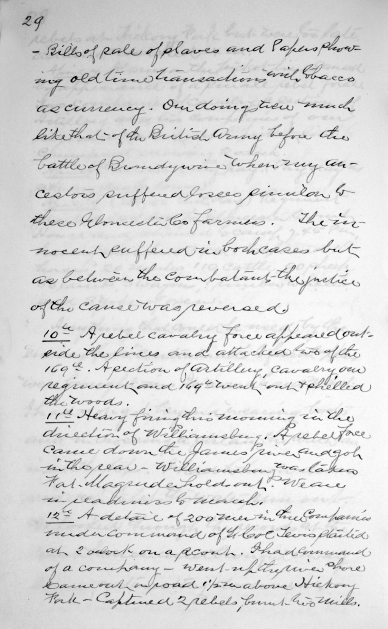 29
- Bills of sale of slaves and Papers show-
ing old time transactions with tobacco
as currency. Our doing were much
like that of the British Army before the
battle of Brandywine when my an-
cestors suffered losses similar to
these Gloucester Co farmers. The in-
nocent suffered in both cases but
as between the combatants the justice
of the cause was reversed.
10th A rebel cavalry force appeared out-
side the lines and attacked two of the
169th. A section of artillery, cavalry our
regiment and 169th went out & shelled
the woods.
11th Heavy firing this morning in the
direction of Williamsburg. A rebel force
came down the James river and got
in the rear - Williamsburg was taken
Fort Magruder holds out. We are
in readiness to march.
12th A detail of 200 men in five Companies
under command of Lt Col Lewis started
at 2 o'clock on a scout. I had command
of a company - went up the river shore
came out on road 1 1/2 m above Hickory
Fork - Captured 2 rebels burnt two mills.